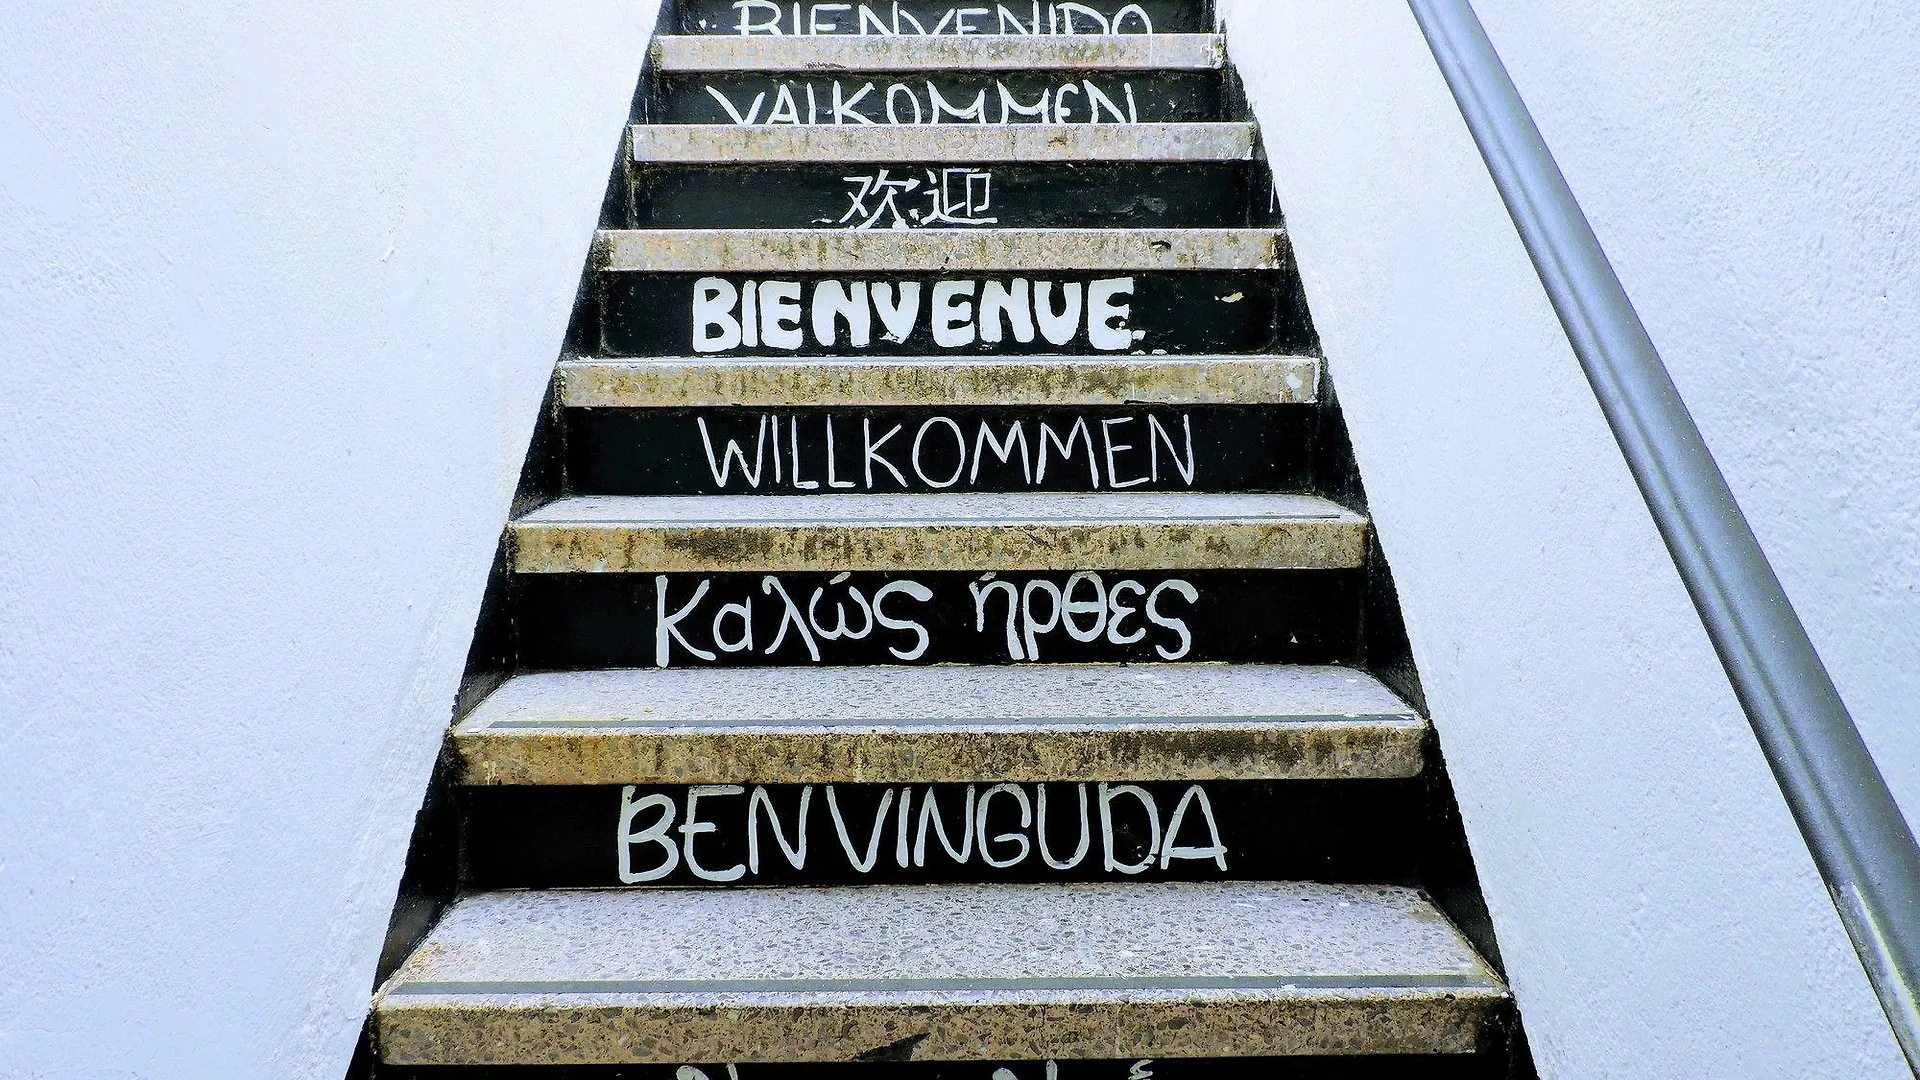 BIENVENIDO
VALKOMMEN
欢迎
BIENVENUE
WILLKOMMEN
Καλώς ήρθες
BENVINGUDA